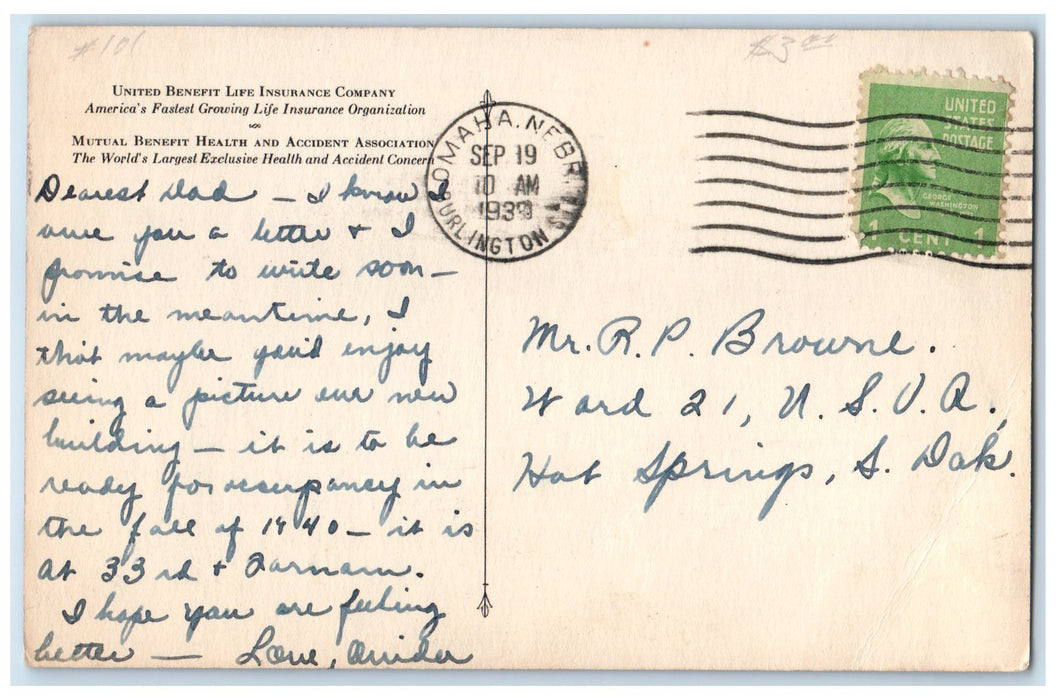 #101
$3.00
UNITED BENEFIT LIFE INSURANCE COMPANY
America's Fastest Growing Life Insurance Organization
MUTUAL BENEFIT HEALTH AND ACCIDENT ASSOCIATION
The World's Largest Exclusive Health and Accident Concern
Dearest Dad — I know I
owe you a letter + I
promise to write soon —
in the meantime, I
that maybe you'd enjoy
seeing a picture our new
building — it is to be
ready for occupancy in
the fall of 1940 — it is
at 33rd + Farnam.
I hope you are feeling
better — Love,
OMAHA, NEBR.
SEP 19
10 AM
1939
BURLINGTON
UNITED
STATES
POSTAGE
GEORGE
WASHINGTON
1 CENT 1
Mr. R. P. Browne.
Ward 21, U. S. V. A.,
Hot Springs, S. Dak.